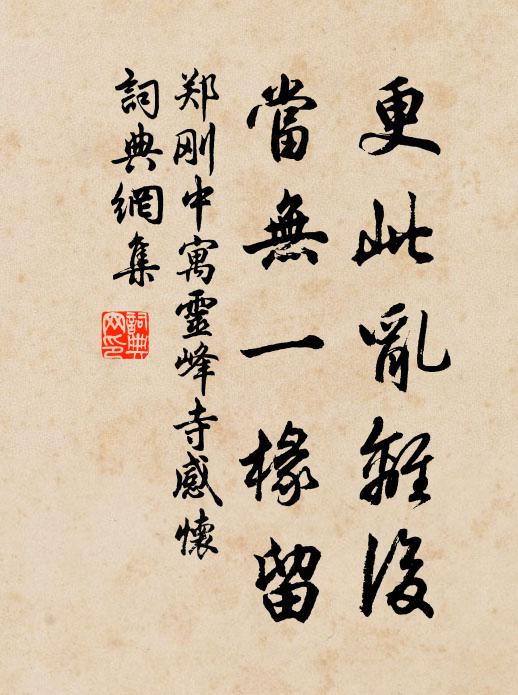 更此亂離後
當無一椽留
郑刚中寓靈峰寺感懷
詞典網集
詞典網印